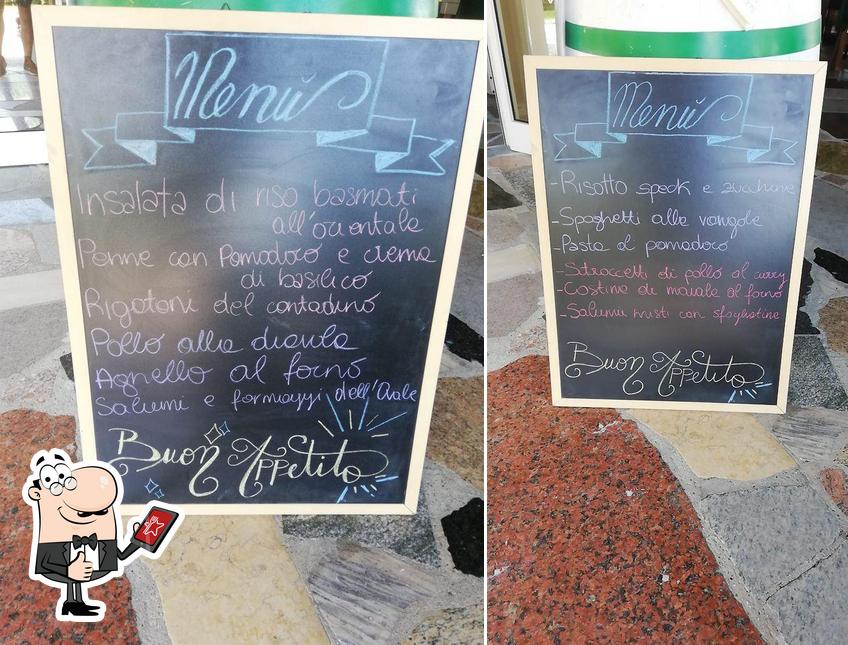 Menù
Insalata di riso basmati
all'orientale
Penne con Pomodoro e crema
di basilico
Rigatoni del contadino
Pollo alla diavola
Agnello al forno
Salumi e formaggi dell'Ovale
Buon Appetito
Menù
-Risotto speck e zucchine
-Spaghetti alle vongole
-Pasta al pomodoro
-Straccetti di pollo al curry
-Costine di maiale al forno
-Salumi misti con sfogliatine
Buon Appetito